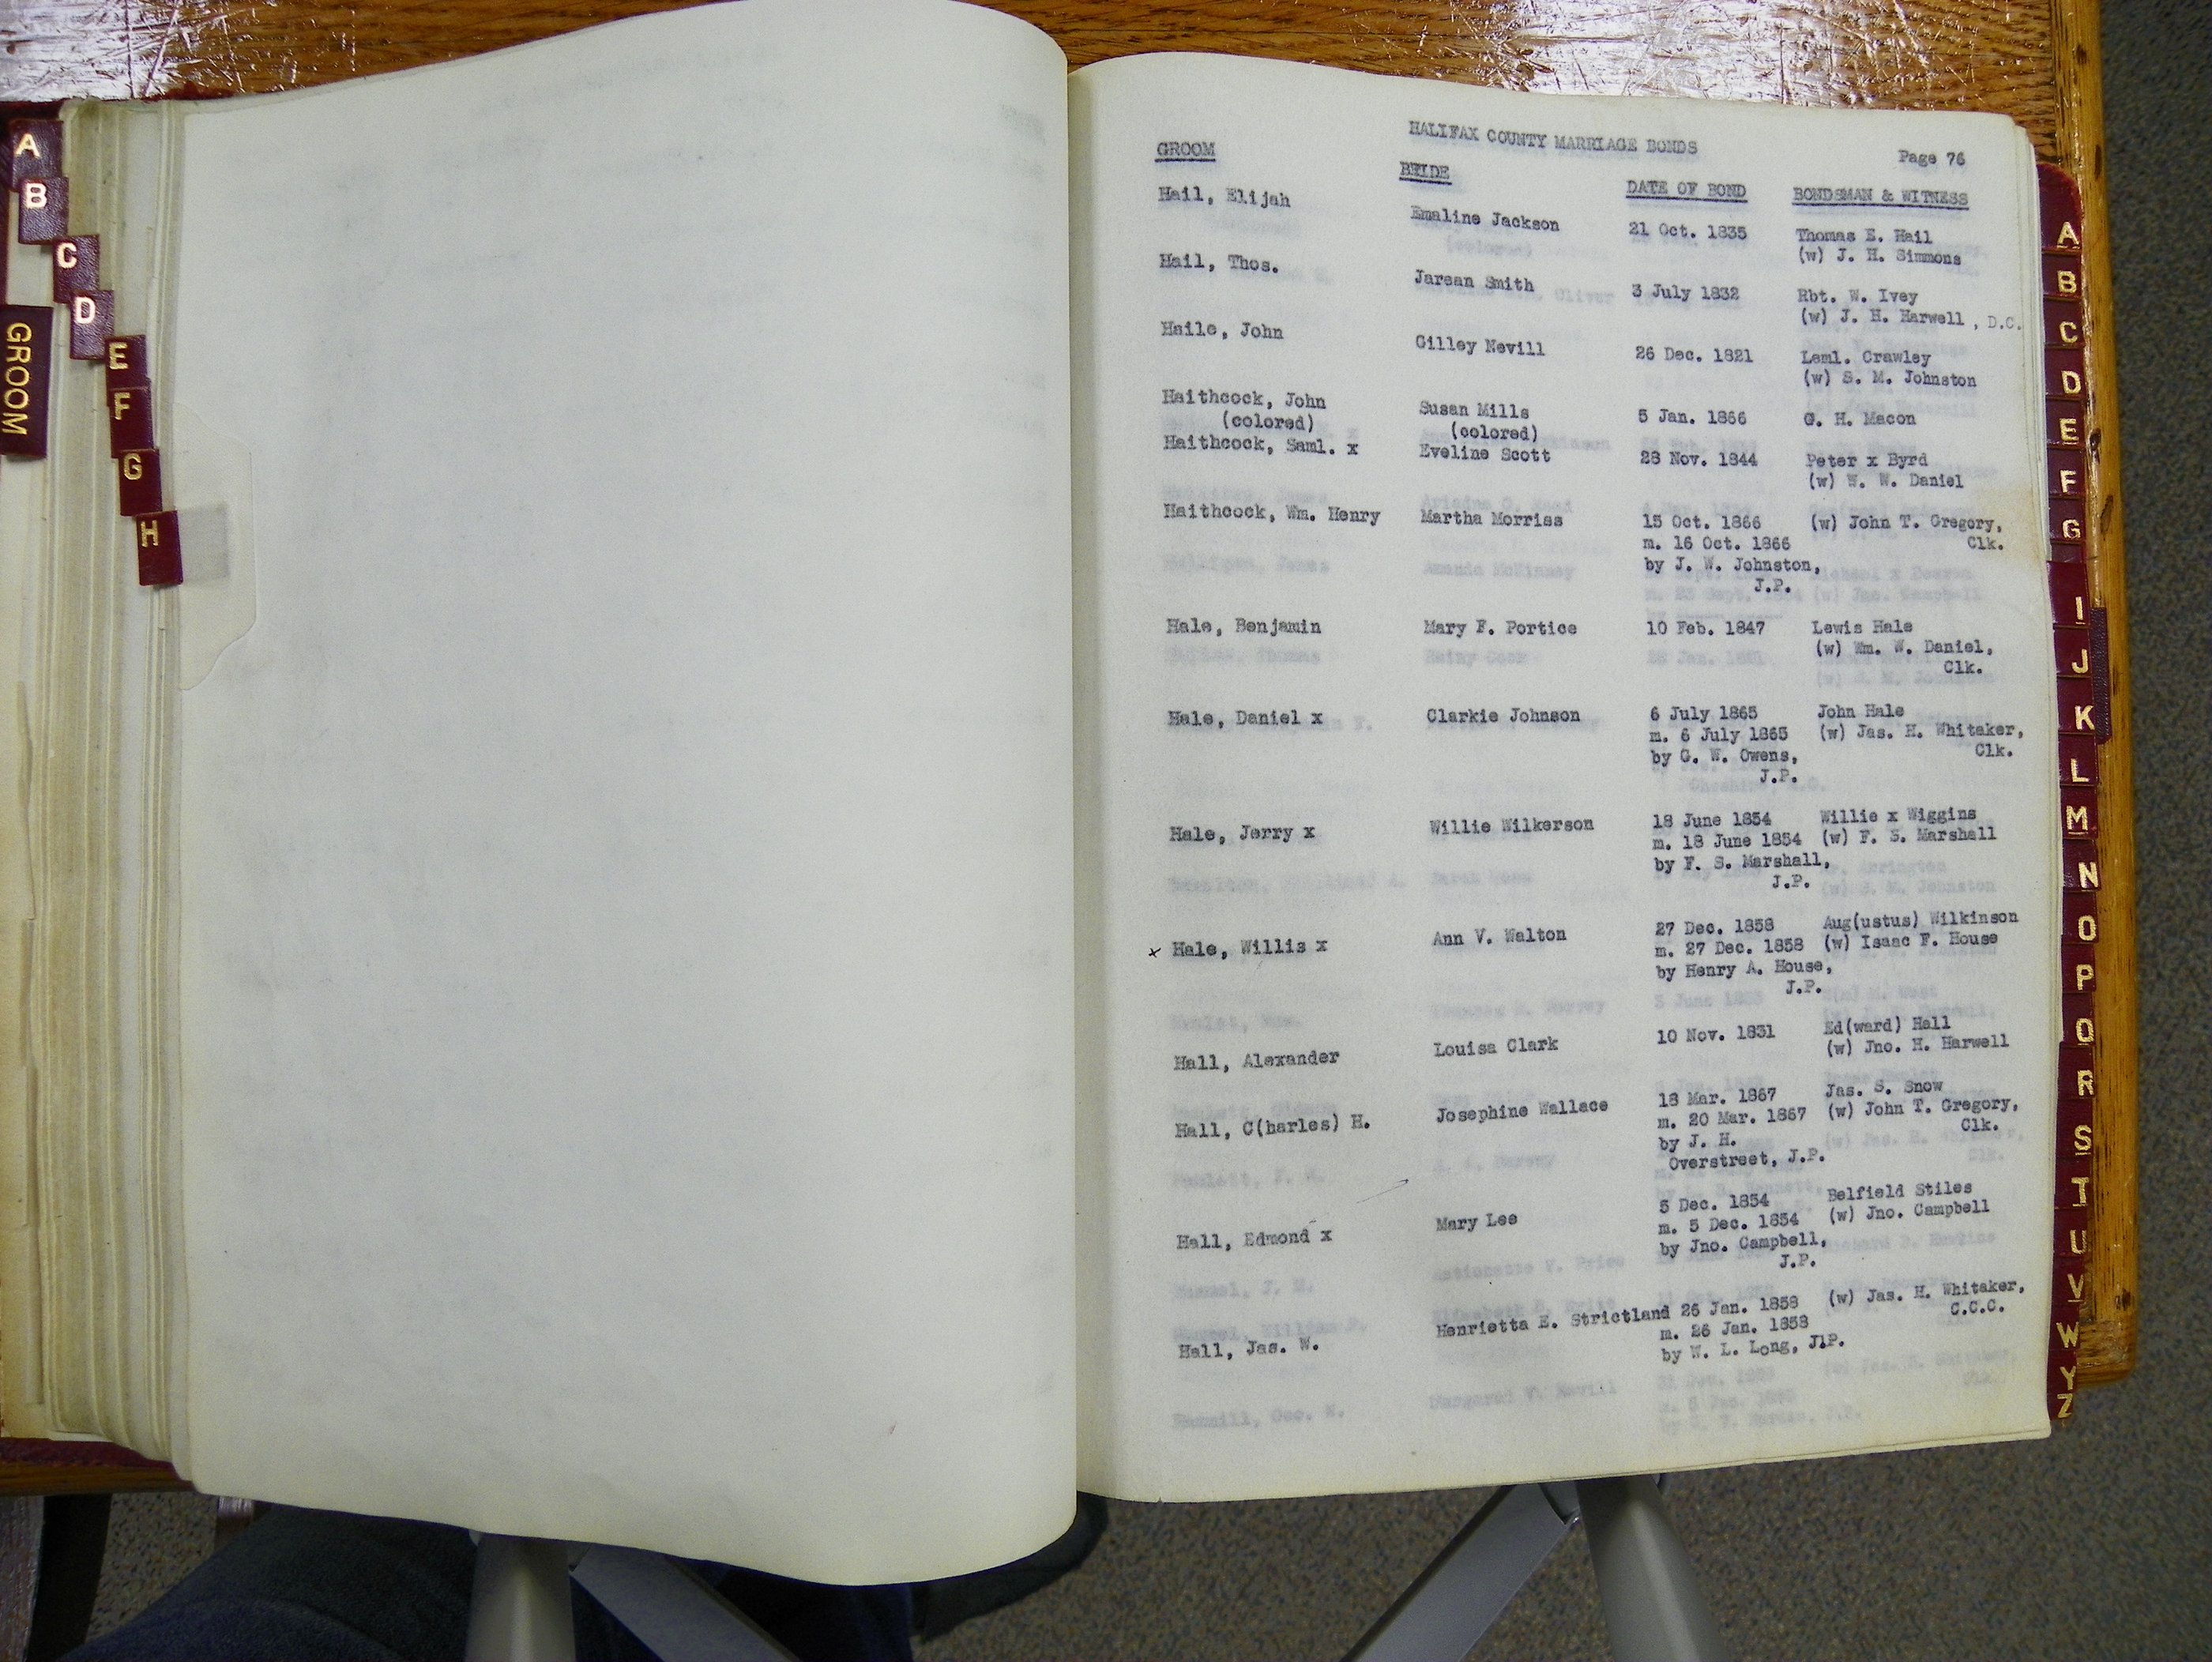 A
B
C
D
E
F
G
H
GROOM
HALIFAX COUNTY MARRIAGE BONDS
Page 76
GROOM BRIDE DATE OF BOND BONDSMAN & WITNESS
Hail, Elijah Emaline Jackson 21 Oct. 1835 Thomas E. Hail
(w) J. H. Simmons
Hail, Thos. Jarean Smith 3 July 1832 Rbt. W. Ivey
(w) J. H. Harwell, D.C.
Haile, John Gilley Nevill 26 Dec. 1821 Leml. Crawley
(w) S. M. Johnston
Haithcock, John Susan Mills 5 Jan. 1866 G. H. Macon
(colored) (colored)
Haithcock, Saml. x Eveline Scott 28 Nov. 1844 Peter x Byrd
(w) W. W. Daniel
Haithcock, Wm. Henry Martha Morriss 15 Oct. 1866 (w) John T. Gregory,
m. 16 Oct. 1866 Clk.
by J. W. Johnston,
J.P.
Hale, Benjamin Mary F. Portice 10 Feb. 1847 Lewis Hale
(w) Wm. W. Daniel,
Clk.
Hale, Daniel x Clarkie Johnson 6 July 1865 John Hale
m. 6 July 1865 (w) Jas. H. Whitaker,
by G. W. Owens, Clk.
J.P.
Hale, Jerry x Willie Wilkerson 18 June 1854 Willie x Wiggins
m. 18 June 1854 (w) F. S. Marshall
by F. S. Marshall,
J.P.
x Hale, Willis x Ann V. Walton 27 Dec. 1858 Aug(ustus) Wilkinson
m. 27 Dec. 1858 (w) Isaac F. House
by Henry A. House,
J.P.
Hall, Alexander Louisa Clark 10 Nov. 1831 Ed(ward) Hall
(w) Jno. H. Harwell
Hall, C(harles) H. Josephine Wallace 18 Mar. 1867 Jas. S. Snow
m. 20 Mar. 1867 (w) John T. Gregory,
by J. H. Clk.
Overstreet, J.P.
Hall, Edmond x Mary Lee 5 Dec. 1854 Belfield Stiles
m. 5 Dec. 1854 (w) Jno. Campbell
by Jno. Campbell,
J.P.
Hall, Jas. W. Henrietta E. Strictland 26 Jan. 1858 (w) Jas. H. Whitaker,
m. 26 Jan. 1858 C.C.C.
by W. L. Long, J.P.
A
B
C
D
E
F
G
I
J
K
L
M
N
O
P
Q
R
S
T
U
V
W
Y
Z